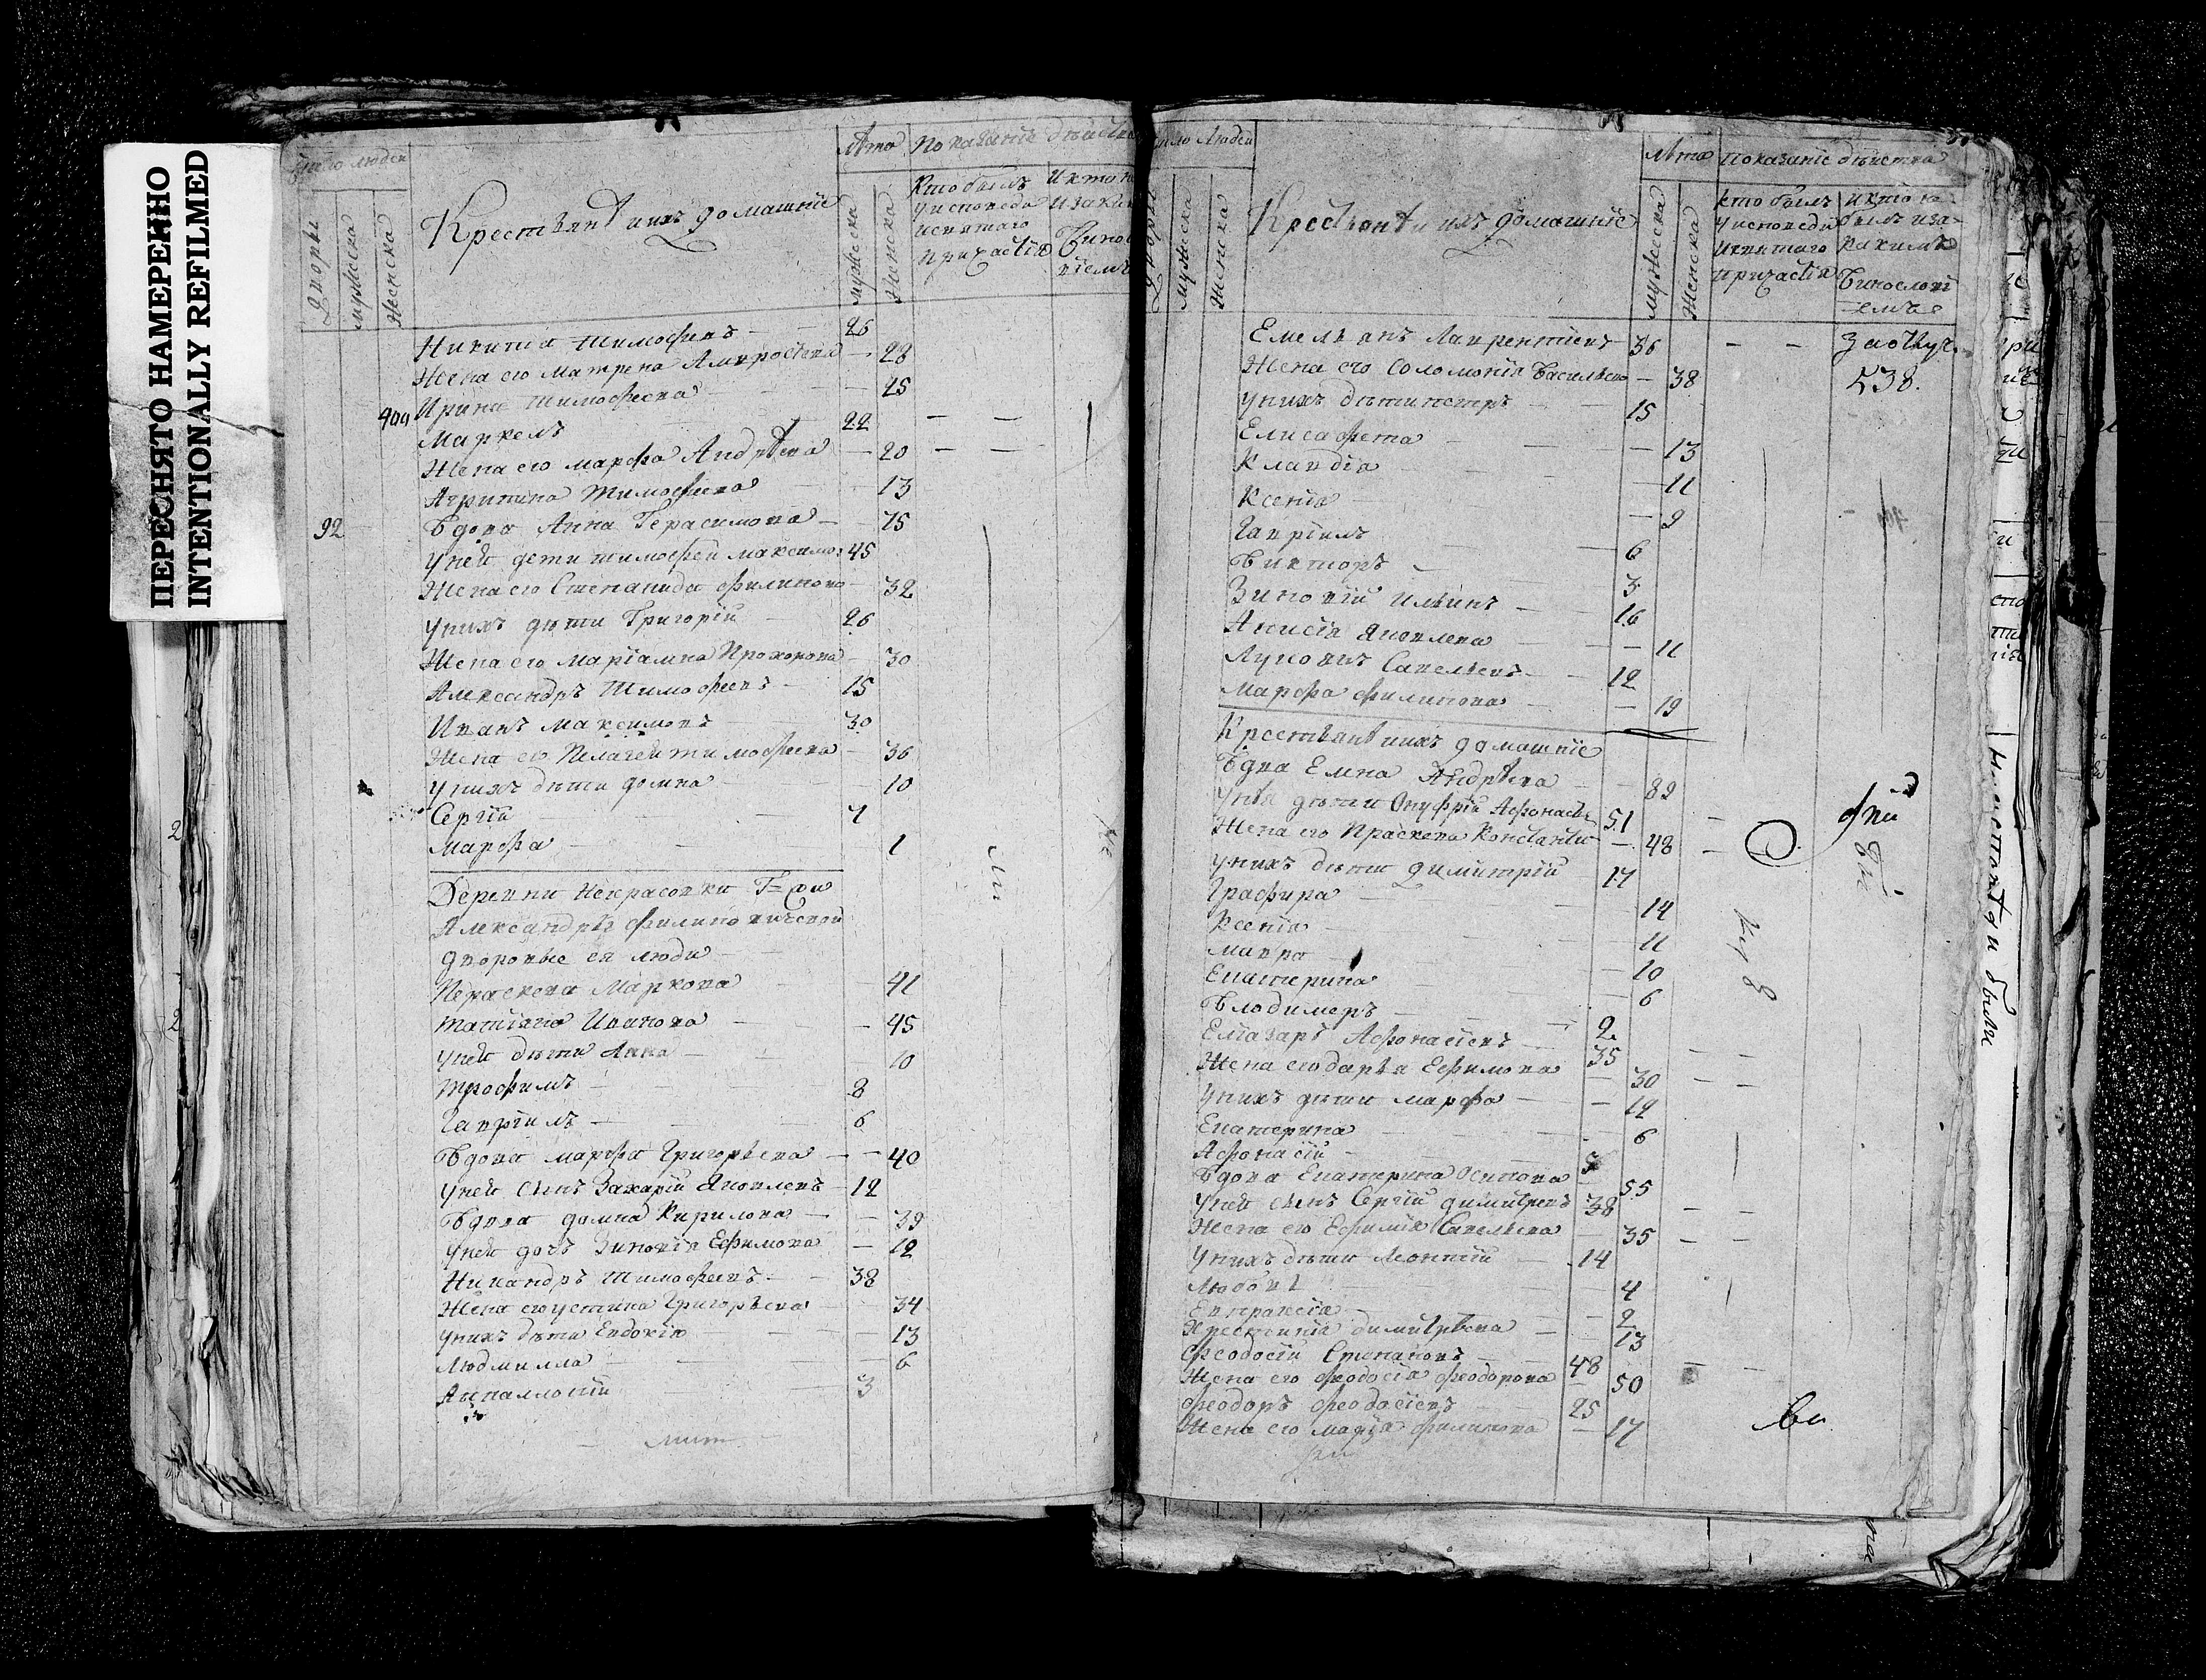 ПЕРЕСНЯТО НАМЕРЕННО
INTENTIONALLY REFILMED
Число людей
Дворы
мужеска
Женска
Крестьянѣ и ихъ домашнїе
Лѣта
мужеска
Женска
Показанїе дѣйства
Кто былъ
у исповеди
и святаго
причастїя
Никита Тимофѣевъ 26
Жена его Матрена Амвросїева 28
Ирина Тимофеева 25
Маркелъ 22
Жена его Марфа Андрѣева 20
Агрипина Тимофеева 13
92 Вдова Анна Герасимова 75
У ней дети Тимофей Максимо: 45
Жена его Степанида Филипова 32
У нихъ дѣти Григорїй 26
Жена его Марїамна Прохорова 30
Александръ Тимофеевъ 15
Иванъ Максимовъ 30
Жена его Пелагея Тимофеева 36
У нихъ дѣти Домна 10
Сергїй 7
Марфа 1
Деревни Некрасовки Г=жи
Александры Филиповичевой
дворовые ея люди
Параскева Маркова 41
Татїяна Иванова 45
У ней дѣти Анна 10
Трофимъ 8
Гаврїилъ 6
Вдова Марфа Григорьева 40
У ней сынъ Захарїй Яковлевъ 12
Вдова Домна Кирилова 39
У ней дочь Зиновїя Ефимова 12
Никандръ Тимофеевъ 38
Жена его Устина Григорьева 34
У нихъ дѣти Евдокїя 13
Людмилла 6
Аполлонїй 3
Число Людей
Дворы
мужеска
Женска
Крестьянѣ и ихъ домашнїе
Лѣта
мужеска
Женска
Показанїе дѣйства
кто былъ
у исповеди
и святаго
причастїя
и кто не
былъ и за
какимъ
винословї
емъ
Емельянъ Лаврентїевъ 36
Жена его Соломонїя Васильева 38 538.
У нихъ дѣти Петръ 15
Елисафета 13
Клавдїя 11
Ксенїя 9
Гаврїилъ 6
Викторъ 3
Зиновїй Ильинъ 16
Анисїя Яковлева 11
Лукоянъ Савельевъ 12
Марфа Филипова 19
Крестьянѣ и ихъ домашнїе
Вдва Елена Андрѣева 82
У нея дѣти Онуфрїй Афонасье 51
Жена его Праскева Константи 48
У нихъ дѣти Димитрїй 17
Графира 14
Ксенїя 11
Мавра 10
Екатерина 6
Владимеръ 2
Елїазаръ Афонасїевъ 35
Жена его Дарья Ефимова 30
У нихъ дѣти Марфа 12
Екатерина 6
Афонасїй
Вдова Екатерина Осипова 55
У ней сынъ Сергїй Димитревъ 38
Жена его Ефимїя Савельева 35
У нихъ дѣти Леонтїй 14
Любовь 4
Евпраксїя 2
Хрестинїя Димитрѣева 13
Феодосїй Степановъ 48
Жена его Феодосїя Феодорова 50
Феодоръ Феодосїевъ 25
Жена его Марфа Филипова 17